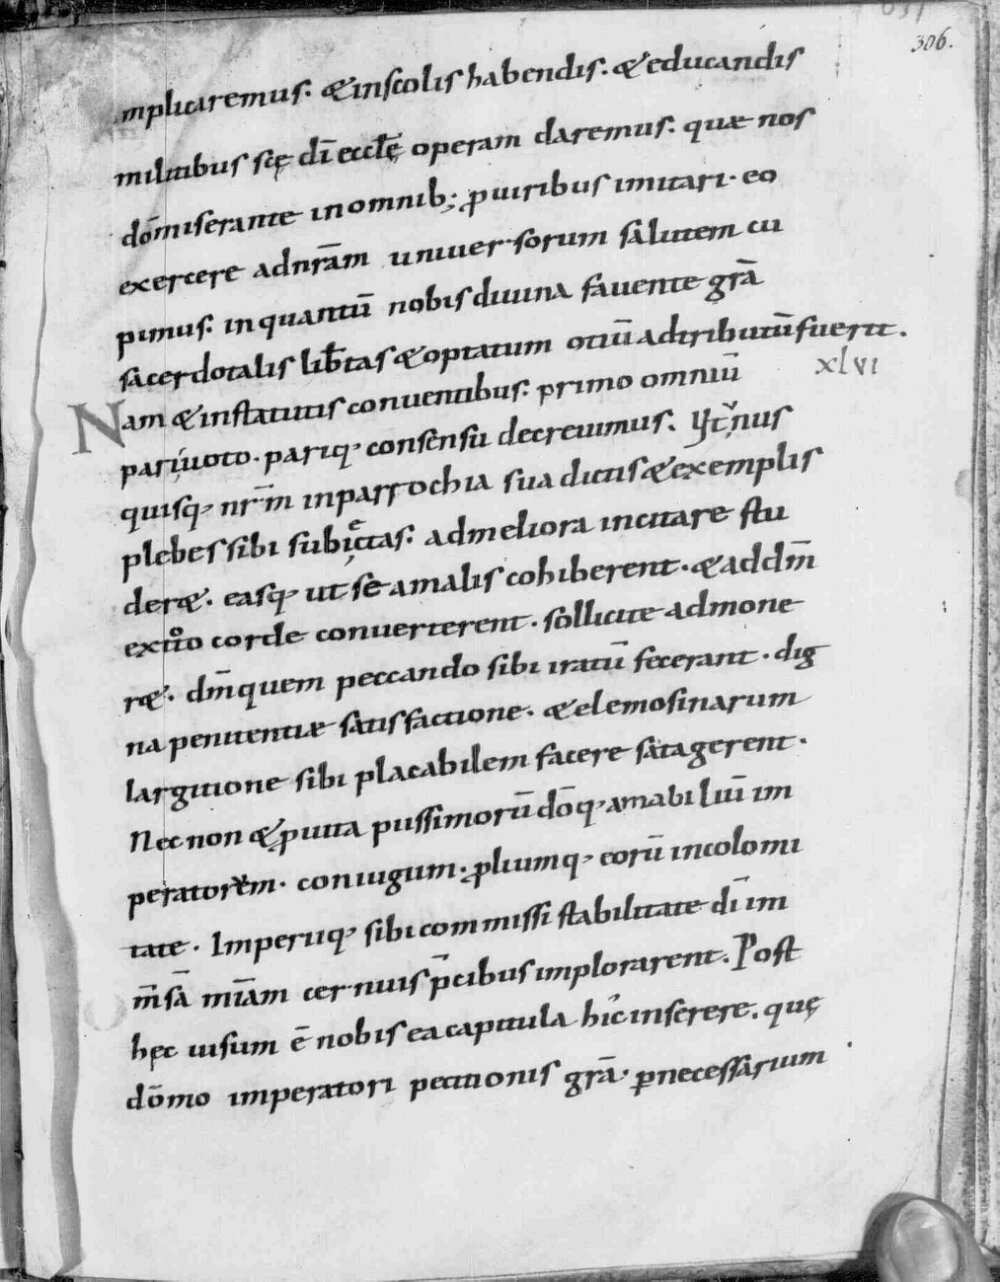 306.
mplicaremus. & inscolis habendis. & educandis
militibus scę dī eccłę operam daremus. quæ nos
dōmiserante inomnib; ꝓuiribus imitari. eo
exercere adnr̄am uniuersorum salutem cu
pimus. inquantū nobis diuina fauente gr̄a
sacerdotalis lib̄tas & optatum otiū adtributū fuerit.
xlvi
Nam & instatutis conuentibus. primo omniū
pari uoto. pariq; consensu decreuimus. ut nus
quisq; nr̄m inparrochia sua dictis & exemplis
plebes sibi subiectas. admeliora incitare stu
der&. easq; ut se amalis cohiberent. & addm̄
extoto corde conuerterent. sollicite admone
r&. dm̄ quem peccando sibi iratū fecerant. dig
na penitentiæ satisfactione. & elemosinarum
largitione sibi placabilem facere satagerent.
Necnon & ꝓuita piissimorū dōq; amabiliū im
peratorem. coniugum. ꝓliumq; eorū incolomi
tate. Imperiiq; sibi commissi stabilitate dī im
m̄sā mīam cernuis p̄cibus implorarent. Post
hęc uisum ē nobis ea capitula hic inserere. quę
dōmo imperatori petitionis gr̄a. ꝑnecessarium